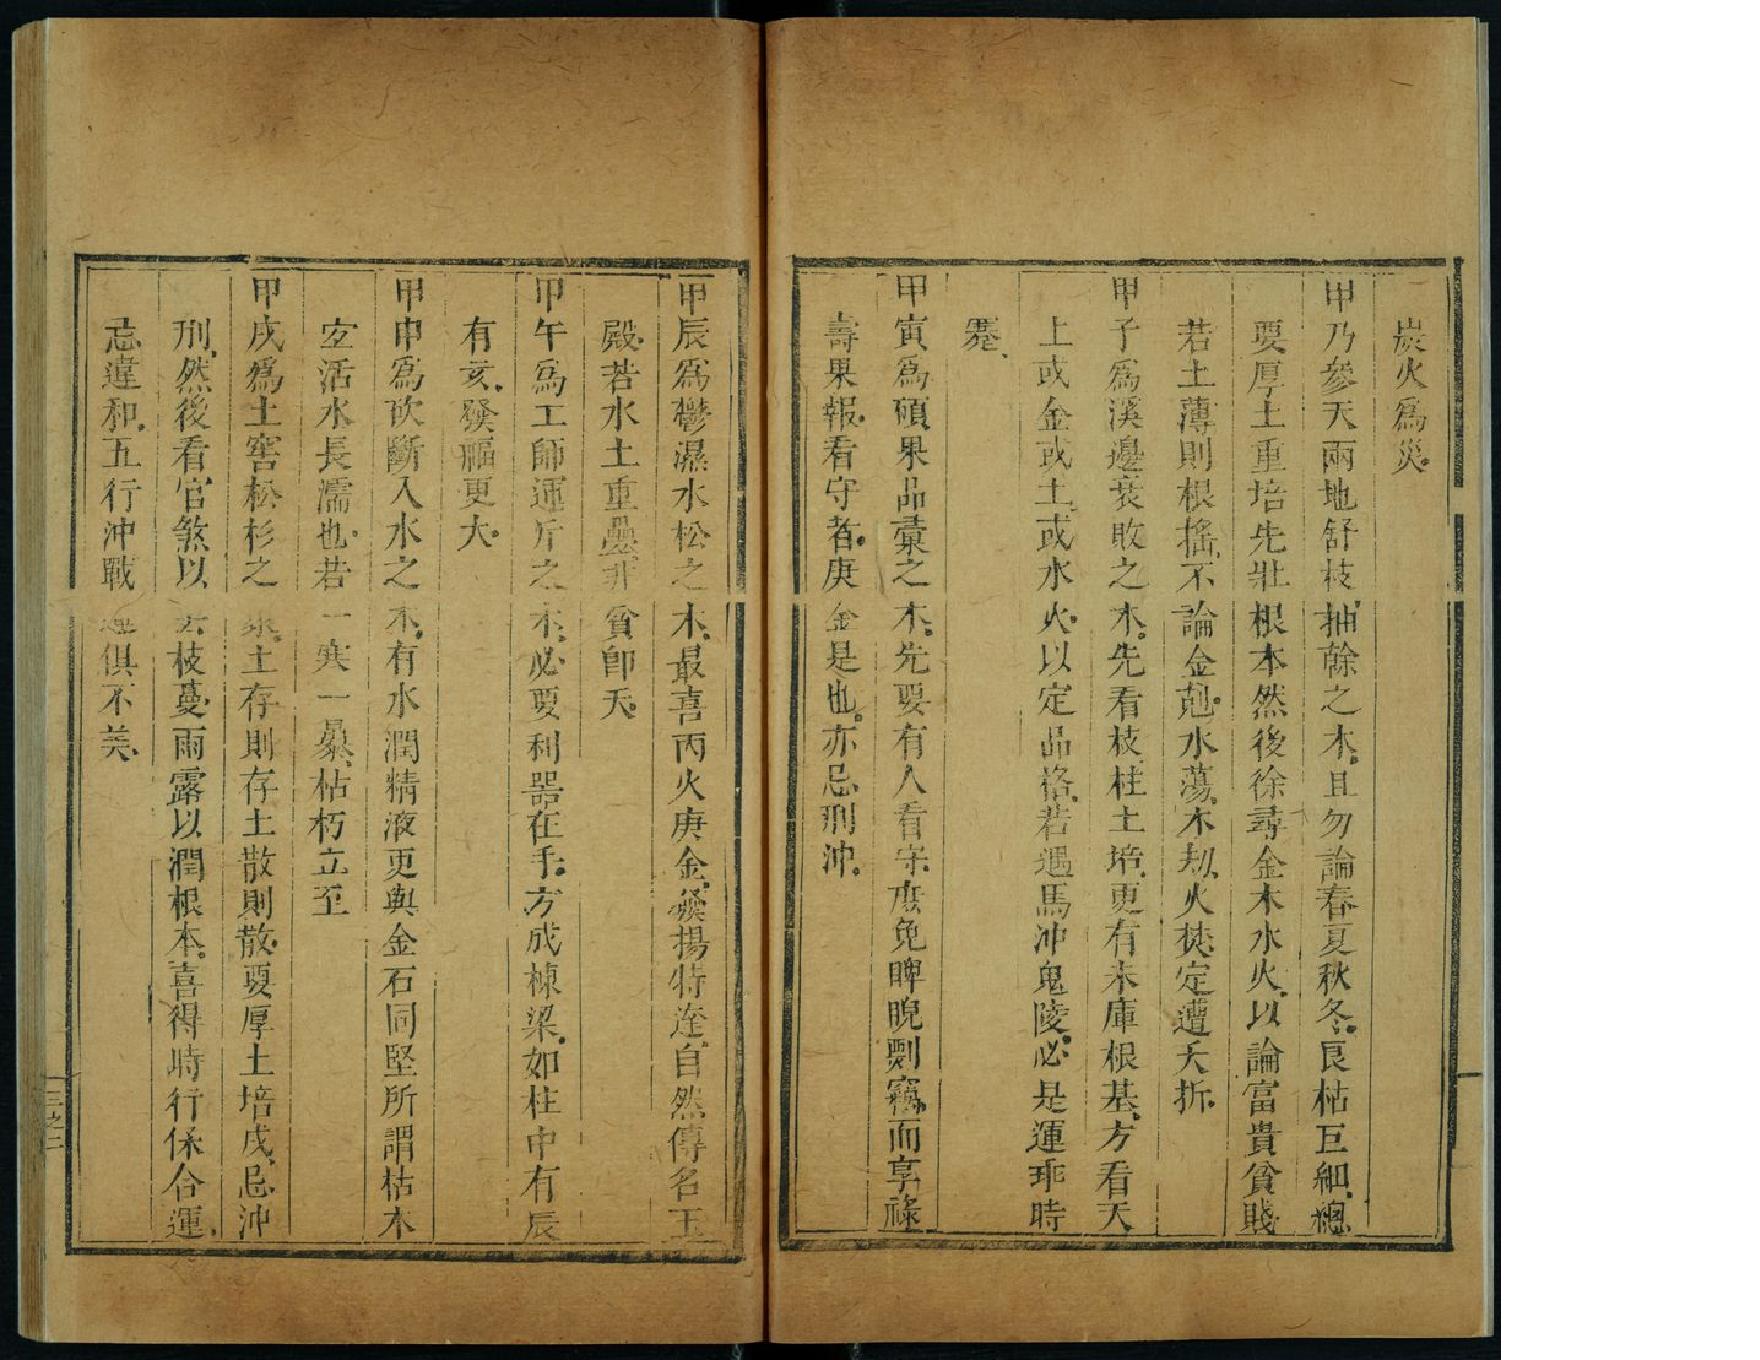 炭火爲災
甲乃參天兩地舒枝抽榦之木且勿論春夏秋冬艮枯巨細總
要厚土重培先壯根本然後徐尋金木水火以論富貴貧賤
若土薄則根搖不論金尅水蕩木刼火焚定遭夭折
甲子爲溪邊衰敗之木先看枝柱土培更有未庫根基方看天
上或金或土或水火以定品格若遇馬冲鬼陵必是運乖時
甲寅爲碩果品彙之木先要有人看守庶免睥睨剽竊而享祿
壽果報看守者庚金是也亦忌刑冲
甲辰爲鬱濕水松之木最喜丙火庚金發揚特達自然傳名玉
殿若水土重疊非貧卽夭
甲午爲工師運斤之木必要利器在手方成棟梁如柱中有辰
有亥發福更大
甲申爲砍斷入水之木有水潤精液更與金石同堅所謂枯木
空活水長濡也若一寒一暴枯朽立至
甲戌爲土窖松杉之 土存則存土散則散要厚土培戌忌沖
刑然後看官煞以去枝蔓雨露以潤根本喜得時行係合運
忌違和五行沖戰 俱不美
三之二